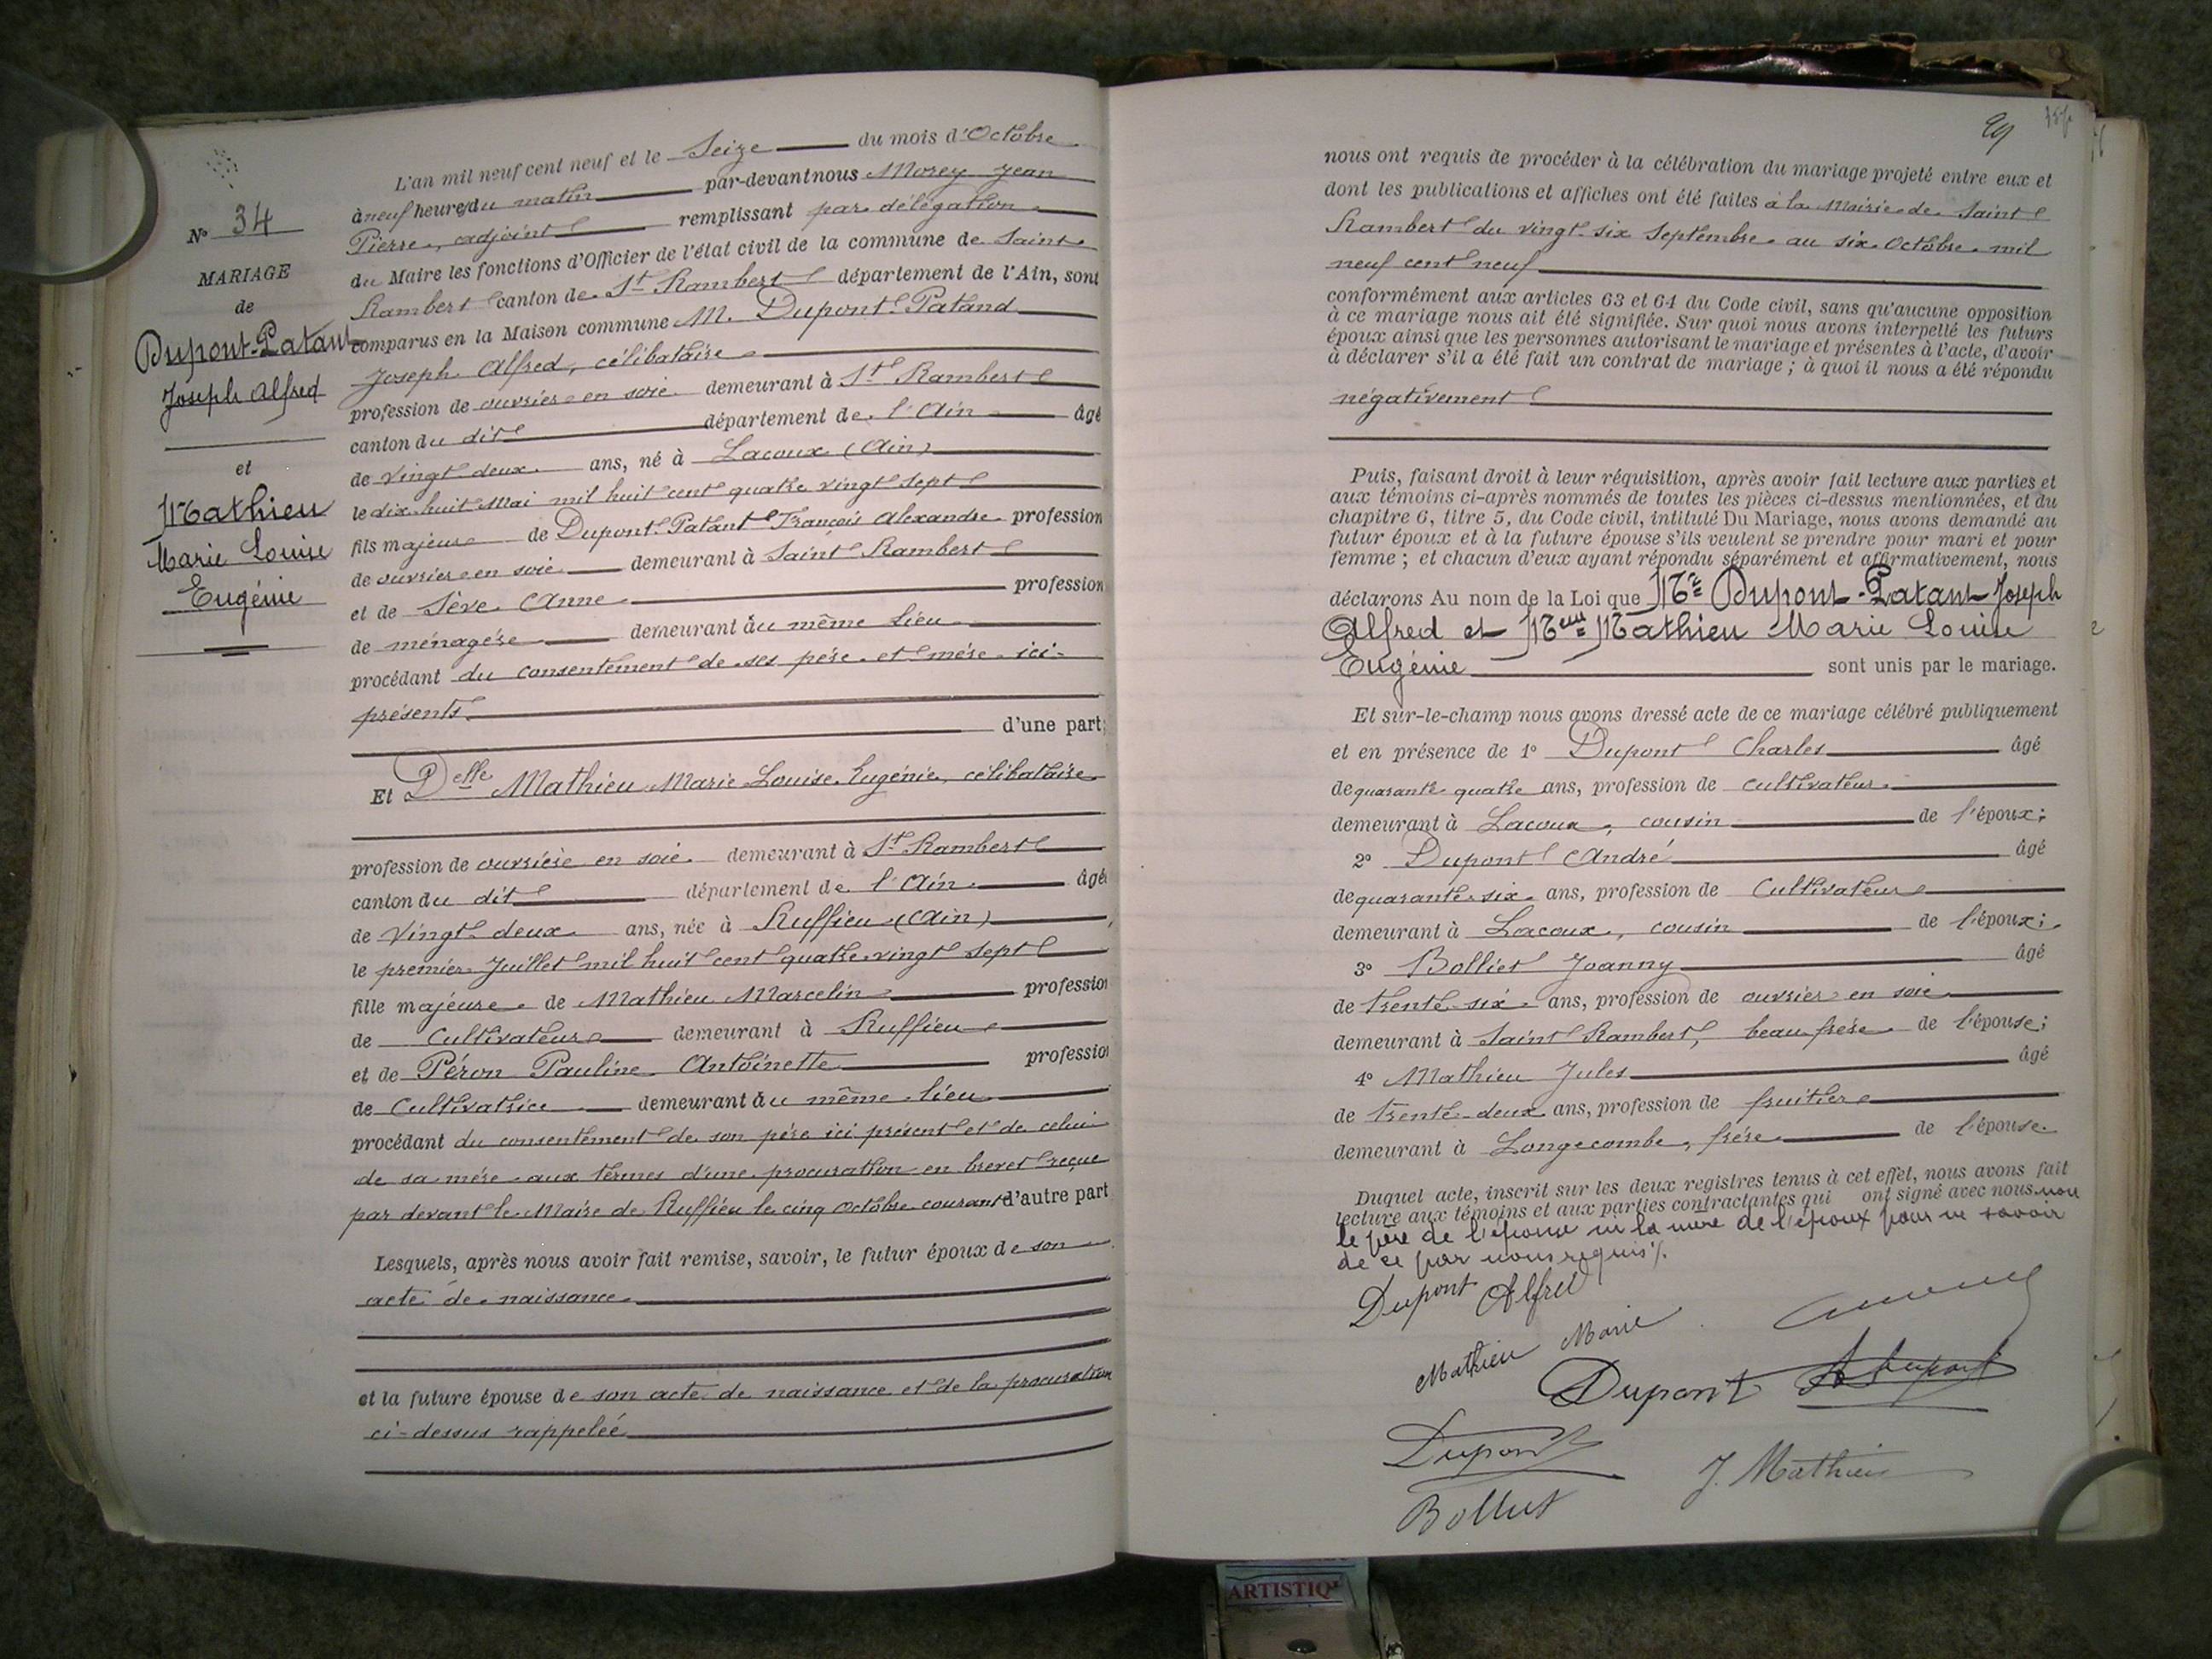 N° 34
MARIAGE
de
Dupont-Patant
Joseph Alfred
et
Mathieu
Marie Louise
Eugénie
L'an mil neuf cent neuf et le Seize du mois d'Octobre
à neuf heures du matin par-devant nous Morey Jean
Pierre, adjoint remplissant par délégation
du Maire les fonctions d'Officier de l'état civil de la commune de Saint
Rambert canton de St Rambert département de l'Ain, sont
comparus en la Maison commune M. Dupont-Patand
Joseph Alfred, célibataire
profession de ouvrier en soie demeurant à St Rambert
canton du dit département de l'Ain âgé
de vingt-deux ans, né à Lacoux (Ain)
le dix huit Mai mil huit cent quatre vingt sept
fils majeur de Dupont-Patant François Alexandre profession
de ouvrier en soie demeurant à Saint Rambert
et de Sève Anne profession
de ménagère demeurant au même lieu
procédant du consentement de ses père et mère ici
présents
d'une part;
Et Delle Mathieu Marie Louise Eugénie, célibataire
profession de ouvrière en soie demeurant à St Rambert
canton du dit département de l'Ain âgée
de vingt-deux ans, née à Ruffieu (Ain)
le premier Juillet mil huit cent quatre vingt sept
fille majeure de Mathieu Marcelin profession
de Cultivateur demeurant à Ruffieu
et de Péron Pauline Antoinette profession
de Cultivatrice demeurant au même lieu
procédant du consentement de son père ici présent et de celui
de sa mère aux termes d'une procuration en brevet reçue
par devant le Maire de Ruffieu le cinq Octobre courant d'autre part
Lesquels, après nous avoir fait remise, savoir, le futur époux de son
acte de naissance
et la future épouse de son acte de naissance et de la procuration
ci-dessus rappelée
29
nous ont requis de procéder à la célébration du mariage projeté entre eux et
dont les publications et affiches ont été faites à la Mairie de Saint
Rambert du vingt-six Septembre au six Octobre mil
neuf cent neuf
conformément aux articles 63 et 64 du Code civil, sans qu'aucune opposition
à ce mariage nous ait été signifiée. Sur quoi nous avons interpellé les futurs
époux ainsi que les personnes autorisant le mariage et présentes à l'acte, d'avoir
à déclarer s'il a été fait un contrat de mariage; à quoi il nous a été répondu
négativement
Puis, faisant droit à leur réquisition, après avoir fait lecture aux parties et
aux témoins ci-après nommés de toutes les pièces ci-dessus mentionnées, et du
chapitre 6, titre 5, du Code civil, intitulé Du Mariage, nous avons demandé au
futur époux et à la future épouse s'ils veulent se prendre pour mari et pour
femme; et chacun d'eux ayant répondu séparément et affirmativement, nous
déclarons Au nom de la Loi que Mr Dupont-Patant Joseph
Alfred et Melle Mathieu Marie Louise
Eugénie sont unis par le mariage.
Et sur-le-champ nous avons dressé acte de ce mariage célébré publiquement
et en présence de 1° Dupont Charles âgé
de quarante quatre ans, profession de cultivateur
demeurant à Lacoux, cousin de l'époux;
2° Dupont André âgé
de quarante-six ans, profession de Cultivateur
demeurant à Lacoux, cousin de l'époux;
3° Bolliet Joanny âgé
de trente-six ans, profession de ouvrier en soie
demeurant à Saint Rambert, beau-frère de l'épouse;
4° Mathieu Jules âgé
de trente-deux ans, profession de fruitier
demeurant à Longecombe, frère de l'épouse
Duquel acte, inscrit sur les deux registres tenus à cet effet, nous avons fait
lecture aux témoins et aux parties contractantes qui ont signé avec nous non
le père de l'épouse ni la mère de l'époux pour ne savoir
de ce par nous requis ./.
Dupont Alfred
Mathieu Marie
Dupont A Dupont
Dupont
J. Mathieu
Bolliet
ARTISTIQ